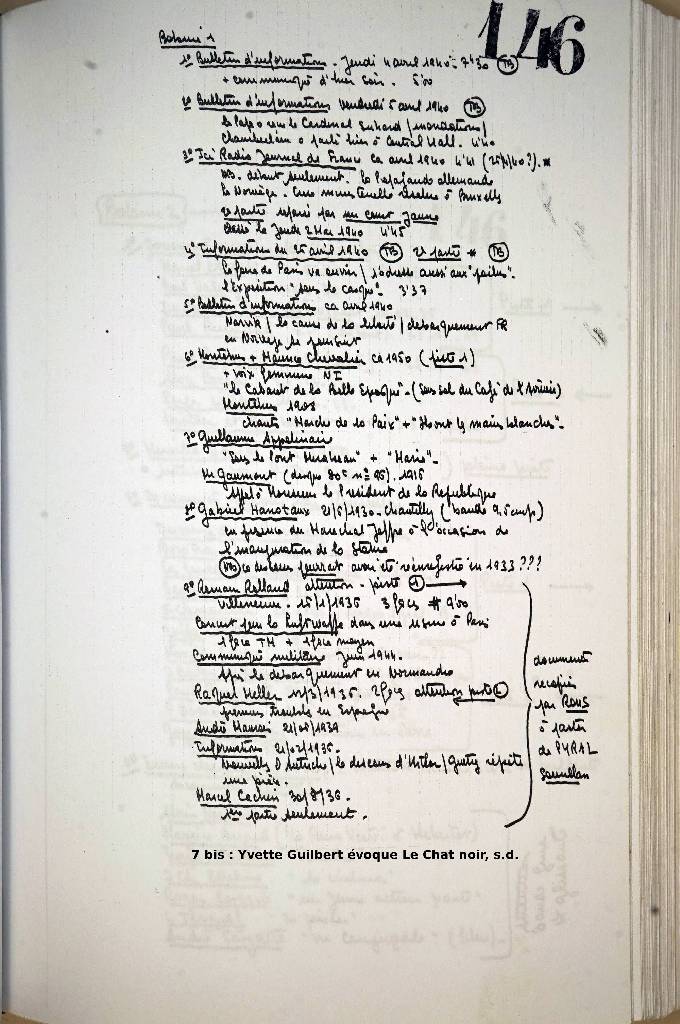 146
Bobine 1
1º Bulletin d'information. Jeudi 4 avril 1940 - 7h30 TB
+ communiqué d'hier soir. 5'00
2º Bulletin d'informations Vendredi 5 avril 1940 TB
le Pape reçoit le Cardinal Suhard / inondations /
Chamberlain a parlé hier à Central Hall. 4'40
3º Ici Radio Journal de France ca avril 1940 4'41
NB. début seulement. la Propagande allemande
la Norvège. à Bruxelles
2e partie par
le Jeudi 2 Mai 1940 4'45
4º Informations du 25 avril 1940 TB 2e partie * TB
la foire de Paris va ouvrir / s'adresse aussi aux "poilus".
l'Exposition "sous le casque". 3'37
5º Bulletin d'informations ca avril 1940
Narvik / la cause de la liberté / débarquement FR
en Norvège se poursuit
6º Montéhus + Maurice Chevalier ca 1950 (piste 1)
+ voix féminine NI
"le Cabaret de la Belle Epoque". (Sous sol du Café de l'Avenir)
Montéhus 1908
chante "Marche de la Paix" + "Ils ont les mains blanches".
7º Guillaume Appolinaire
"Sous le Pont Mirabeau" + "Marie".
Mr Gaumont (disque 80t nº 95). 1915
Appel à Monsieur le Président de la République
8º Gabriel Hanotaux 21/5/1930 - Chantilly (bande 9,5 cm/s)
en présence du Maréchal Joffre à l'occasion de
l'inauguration de la Statue
NB ce discours pourrait avoir été réenregistré en 1933 ???
9º Romain Rolland attention - piste 1 →
Villeneuve. 15/1/1936 3 faces # 9'00
Concert pour la Luftwaffe dans une usine à Paris
1 face TM + 1 face moyen
Communiqué militaire Juin 1944.
après le débarquement en Normandie
Raquel Meller 2 faces attention piste
premiers troubles en Espagne
André Maurois
Informations
le discours d'Hitler /
une pièce.
Marcel Cachin 30/8/36.
1ère partie seulement.
documents
recopiés
par
à partir
de PYRAL
7 bis : Yvette Guilbert évoque Le Chat noir, s.d.